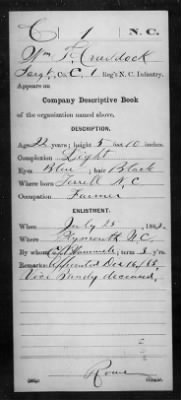 C 1 N. C.
Wm T. Craddock
Sergt., Co. C, 1 Reg't N. C. Infantry.
Appears on
Company Descriptive Book
of the organization named above.
DESCRIPTION.
Age 22 years; height 5 feet 10 inches
Complexion Light
Eyes Blue; hair Black
Where born Terrell N.C
Occupation Farmer
ENLISTMENT.
When July 28, 186
Where Plymouth N.C.
By whom Capt; term 3 y'rs.
Remarks: Appointed Dec 16/
Vice deceased.
Rowe